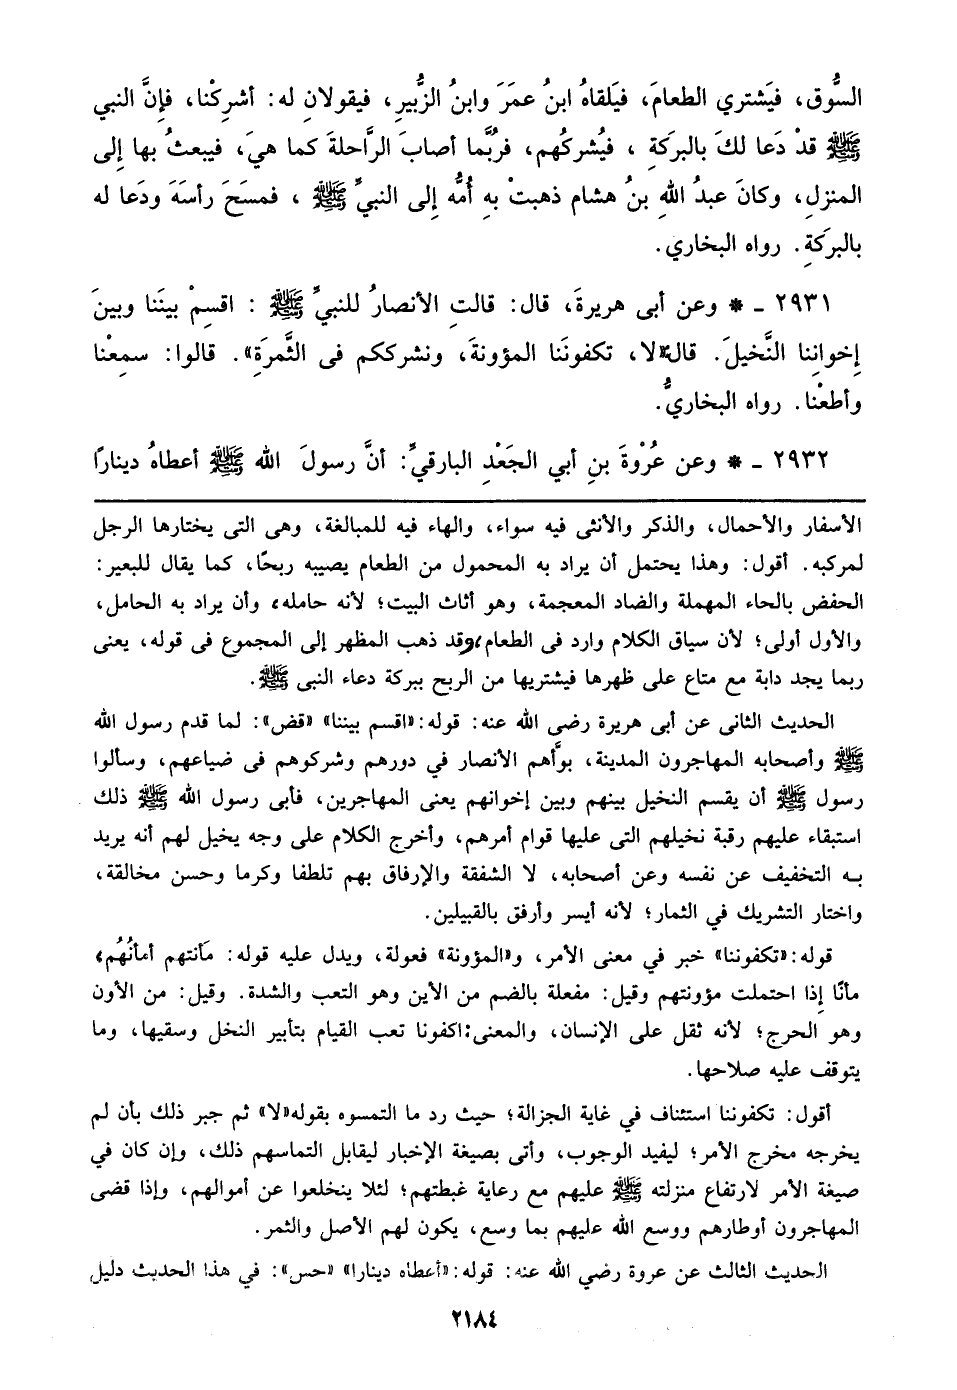 السُّوق، فيَشتري الطعامَ، فيَلقاهُ ابنُ عمَرَ وابنُ الزُّبيرِ، فيقولانِ له: أشرِكْنا، فإنَّ النبي
ﷺ قدْ دَعا لكَ بالبرَكةِ ، فيُشركُهم، فرُبَّما أصابَ الرَّاحلةَ كما هيَ، فيبعثُ بها إلى
المنزلِ، وكانَ عبدُ اللهِ بنُ هشام ذهبتْ بهِ أُمُّه إلى النبيِّ ﷺ ، فمسَحَ رأسَهَ ودَعا له
بالبرَكةِ. رواه البخاري.
٢٩٣١ ـ * وعن أبى هريرةَ، قال: قالتِ الأنصارُ للنبيِّ ﷺ : اقسِمْ بينَنا وبينَ
إخواننا النَّخيلَ. قال: «لا، تكفونَنا المؤونةَ، ونشرككم فى الثَّمرَةِ». قالوا: سمعْنا
وأطعْنا. رواه البخاريُّ.
٢٩٣٢ ـ * وعن عُرْوةَ بنِ أبي الجَعْدِ البارقيِّ: أنَّ رسولَ الله ﷺ أعطاهُ دينارًا
الأسفار والأحمال، والذكر والأنثى فيه سواء، والهاء فيه للمبالغة، وهى التى يختارها الرجل
لمركبه. أقول: وهذا يحتمل أن يراد به المحمول من الطعام يصيبه ربحًا، كما يقال للبعير:
الحفض بالحاء المهملة والضاد المعجمة، وهو أثاث البيت؛ لأنه حامله، وأن يراد به الحامل،
والأول أولى؛ لأن سياق الكلام وارد فى الطعام، وقد ذهب المظهر إلى المجموع فى قوله، يعنى
ربما يجد دابة مع متاع على ظهرها فيشتريها من الربح ببركة دعاء النبى ﷺ.
الحديث الثانى عن أبى هريرة رضى الله عنه: قوله: «اقسم بيننا» «قض»: لما قدم رسول الله
ﷺ وأصحابه المهاجرون المدينة، بوَّأهم الأنصار في دورهم وشركوهم فى ضياعهم، وسألوا
رسول ﷺ أن يقسم النخيل بينهم وبين إخوانهم يعنى المهاجرين، فأبى رسول الله ﷺ ذلك
استبقاء عليهم رقبة نخيلهم التى عليها قوام أمرهم، وأخرج الكلام على وجه يخيل لهم أنه يريد
بـه التخفيف عن نفسه وعن أصحابه، لا الشفقة والإرفاق بهم تلطفا وكرما وحسن مخالقة،
واختار التشريك في الثمار؛ لأنه أيسر وأرفق بالقبيلين.
قوله: «تكفوننا» خبر في معنى الأمر، و«المؤونة» فعولة، ويدل عليه قوله: مَأنتهم أمأنُهُم،
مأنًا إذا احتملت مؤونتهم وقيل: مفعلة بالضم من الأين وهو التعب والشدة. وقيل: من الأون
وهو الحرج؛ لأنه ثقل على الإنسان، والمعنى: اكفونا تعب القيام بتأبير النخل وسقيها، وما
يتوقف عليه صلاحها.
أقول: تكفوننا استئناف في غاية الجزالة؛ حيث رد ما التمسوه بقوله «لا» ثم جبر ذلك بأن لم
يخرجه مخرج الأمر؛ ليفيد الوجوب، وأتى بصيغة الإخبار ليقابل التماسهم ذلك، وإن كان في
صيغة الأمر لارتفاع منزلته ﷺ عليهم مع رعاية غبطتهم؛ لئلا ينخلعوا عن أموالهم، وإذا قضى
المهاجرون أوطارهم ووسع الله عليهم بما وسع، يكون لهم الأصل والثمر.
الحديث الثالث عن عروة رضي الله عنه: قوله: «أعطاه دينارا» «حس»: في هذا الحديث دليل
٢١٨٤